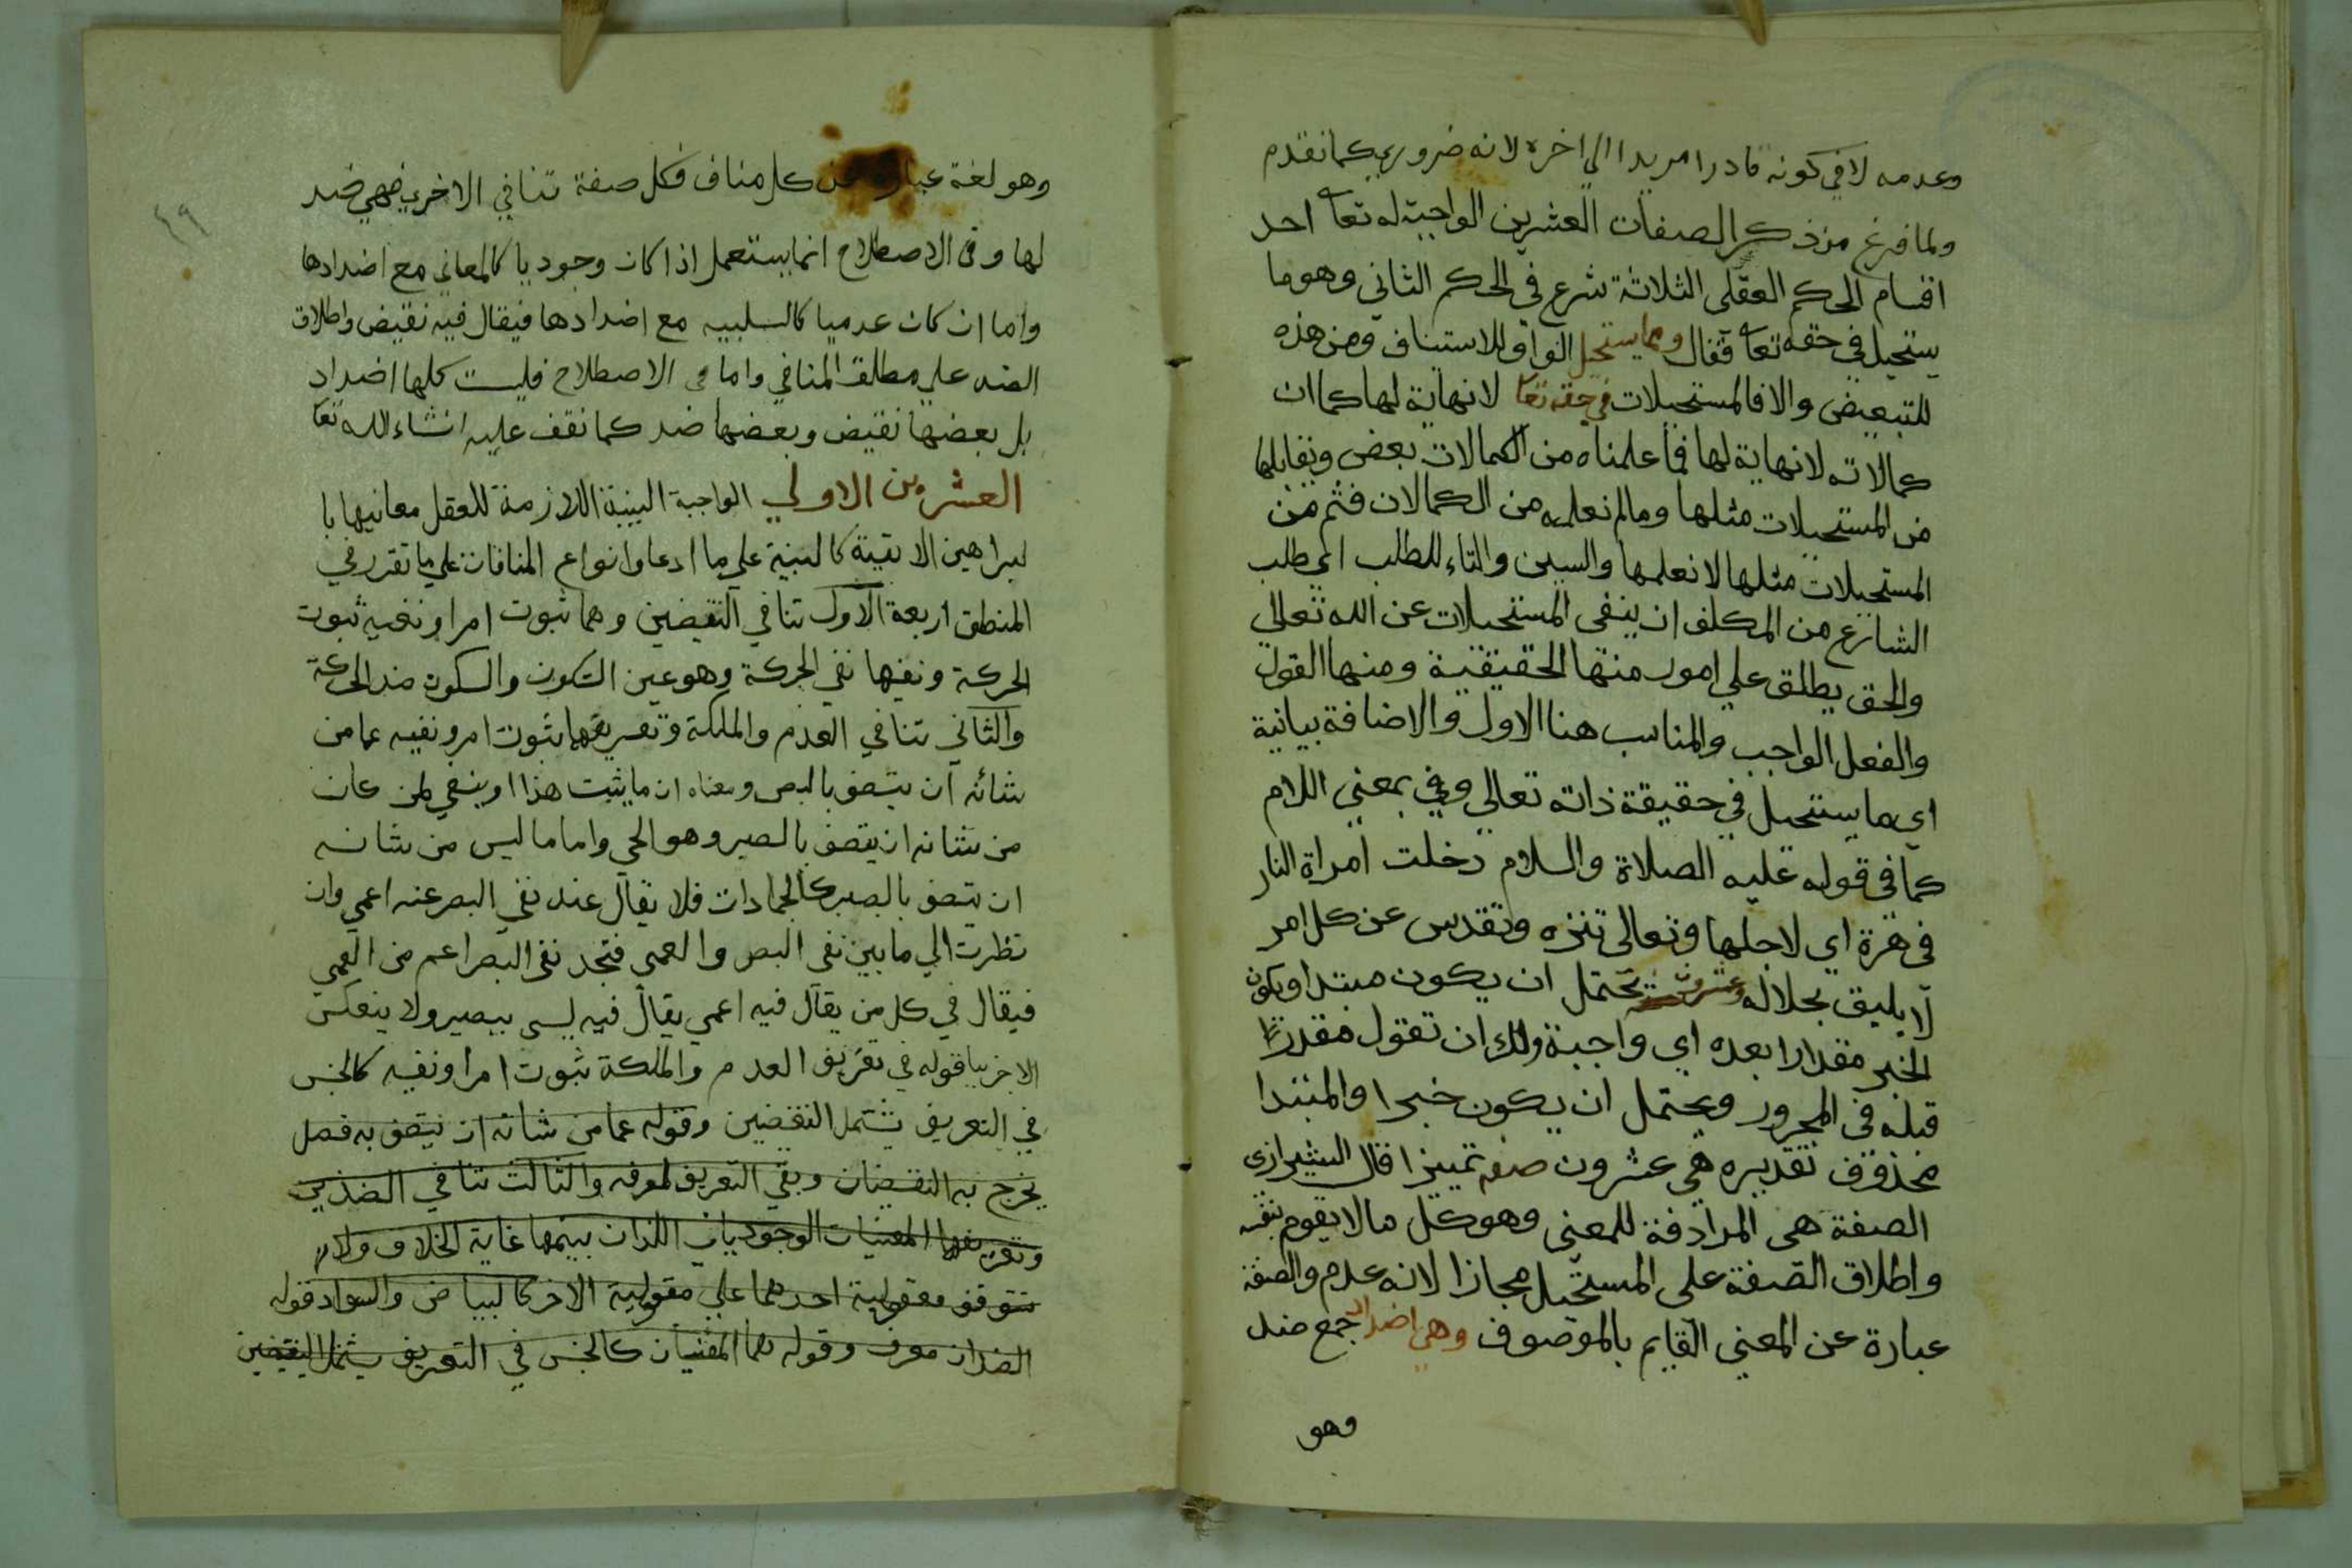 وعدمه لا في كونه قادرا مريدا الي اخره لانه ضروري كما تقدم
ولما فرغ من ذكر الصفات العشرين الواجبة له تعا احد
اقسام الحكم العقلى الثلاثة شرع في الحكم الثاني وهو ما
يستحيل في حقه تعا فقال ومما يستحيل الواو للاستناف ومن هذه
للتبعيض والا فالمستحيلات في حقه تعا لا نهاية لها كما ان
كمالاته لا نهاية لها فما علمناه من الكمالات بعض ويقابلها
من المستحيلات مثلها وما لم نعلمه من الكمالات فثم من
المستحيلات مثلها لا نعلمها والسين والتاء للطلب اي طلب
الشارع من المكلف ان ينفى المستحيلات عن الله تعالي
والحق يطلق علي امور منها الحقيقة ومنها القول
والفعل الواجب والمناسب هنا الاول والاضافة بيانية
اي ما يستحيل في حقيقة ذاته تعالي وفي بمعني اللام
كما في قوله عليه الصلاة والسلام دخلت امراة النار
في هرة اي لاجلها وتعالى تنزه وتقدس عن كل امر
لا يليق بجلاله عشرون يحتمل ان يكون مبتدا ويكون
الخبر مقدارا بعده اي واجبة ولك ان تقول مقدرا
قبله في المجرور ويحتمل ان يكون خبرا والمبتدا
محذوف تقديره هي عشرون صفة تمييزا قال الشيرازي
الصفة هى المرادفة للمعنى وهو كل ما لا يقوم بنفسه
واطلاق الصفة على المستحيل مجازا لانه عدم والصفة
عبارة عن المعنى القايم بالموصوف وهي اضداد جمع ضد
وهو
٤٩
وهو لغة عبارة عن كل مناف فكل صفة تنافي الاخري فهي ضد
لها وفى الاصطلاح انما يستعمل اذا كان وجوديا كالمعاني مع اضدادها
واما ان كان عدميا كالسلبيه مع اضدادها فيقال فيه نقيض واطلاق
الضد علي مطلق المنافي واما في الاصطلاح فليست كلها اضداد
بل بعضها نقيض وبعضها ضد كما نقف عليه انشاء الله تعا
العشرين الاولي الواجبة البينة اللازمة للعقل معانيها با
لبراهين الاتية كالبينة علي ما ادعا وانواع المنافات علي ما تقرر في
المنطق اربعة الاول تنافي النقيضين وهما ثبوت امر او نفيه ثبوت
الحركة ونفيها نفي الحركة وهو عين السكون والسكون ضد الحركة
والثاني تنافي العدم والملكة وتعريفهما ثبوت امر ونفيه عما من
شانه ان يتصف بالبصر ومعناه ان ما يثبت هذا او ينفي لمن كان
من شانه ان يتصف بالصير وهو الحي واما ما ليس من شانه
ان يتصف بالبصر كالجمادات فلا يقال عند نفي البصر عنه اعمي وان
نظرت الي ما بين نفي البصر والعمي فتجد نفي البصر اعم من العمي
فيقال في كل من يقال فيه اعمي يقال فيه ليس ببصير ولا ينعكس
الاخر بيا قوله في تعريف العدم والملكة ثبوت امر او نفيه كالجنس
في التعريف يشتمل النقيضين وقوله عما من شانه ان يتصف به فصل
يخرج به النقيضان وبقي التعريف لمعرفه والثالث تنافي الضدين
وتعريفهما المعنيان الوجوديان اللذان بينهما غاية الخلاف ولا
تتوقف معقولية احدهما علي معقولية الاخر كالبياض والسواد قوله
الضدان معرف وقوله هما المعنيان كالجنس في التعريف يشمل النقيضين